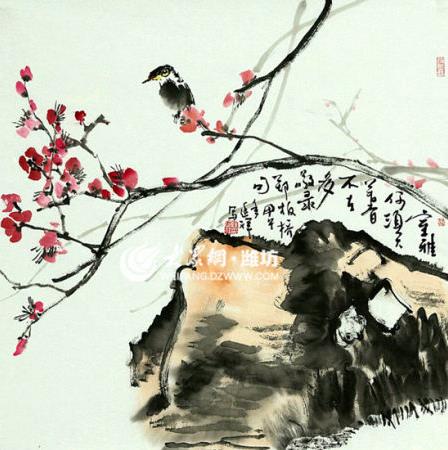 室雅
何须大
花香
不在
多
敬录
郑板桥
句
甲午
大众网·潍坊
WEIFANG.DZWWW.COM